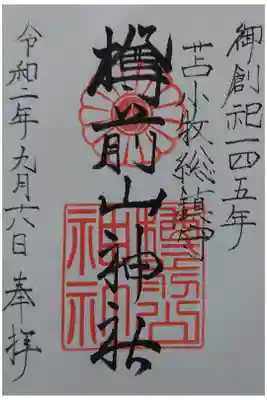 御創祀一四五年
苫小牧総鎮守
樽前山神社
令和二年九月六日 奉拝